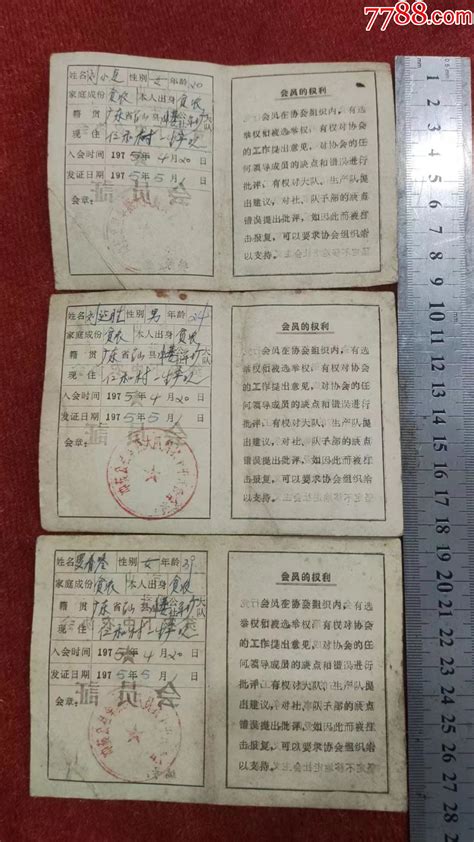 7788.com
姓名 刘小 性别 女 年龄 20
家庭成份 贫农 本人出身 贫农
籍贯 广东省 县 大队
现住 仁和村一生产
入会时间 1975年4月20日
发证日期 1975年5月1日
会章:
会员的权利
会员在协会组织内,有选
举权和被选举权,有权对协会
的工作提出意见,对协会的任
何领导成员的缺点和错误进行
批评,有权对大队、生产队提
出建议,对社、队干部的缺点
错误提出批评,如因此而被打
击报复,可以要求协会组织给
以支持。
姓名 刘 性别 男 年龄 24
家庭成份 贫农 本人出身 贫农
籍贯 广东省 县 大队
现住 仁和村一生产
入会时间 1975年4月20日
发证日期 1975年5月1日
会章:
会员的权利
会员在协会组织内,有选
举权和被选举权,有权对协会
的工作提出意见,对协会的任
何领导成员的缺点和错误进行
批评,有权对大队、生产队提
出建议,对社、队干部的缺点
错误提出批评,如因此而被打
击报复,可以要求协会组织给
以支持。
姓名 性别 女 年龄 39
家庭成份 贫农 本人出身 贫农
籍贯 广东省 县 大队
现住 仁和村一生产
入会时间 1975年4月20日
发证日期 1975年5月1日
会章:
会员的权利
会员在协会组织内,有选
举权和被选举权,有权对协会
的工作提出意见,对协会的任
何领导成员的缺点和错误进行
批评,有权对大队、生产队提
出建议,对社、队干部的缺点
错误提出批评,如因此而被打
击报复,可以要求协会组织给
以支持。
1
2
3
4
5
6
7
8
9
10
11
12
13
14
15
16
17
18
19
20
21
22
23
24
25
26
27
28